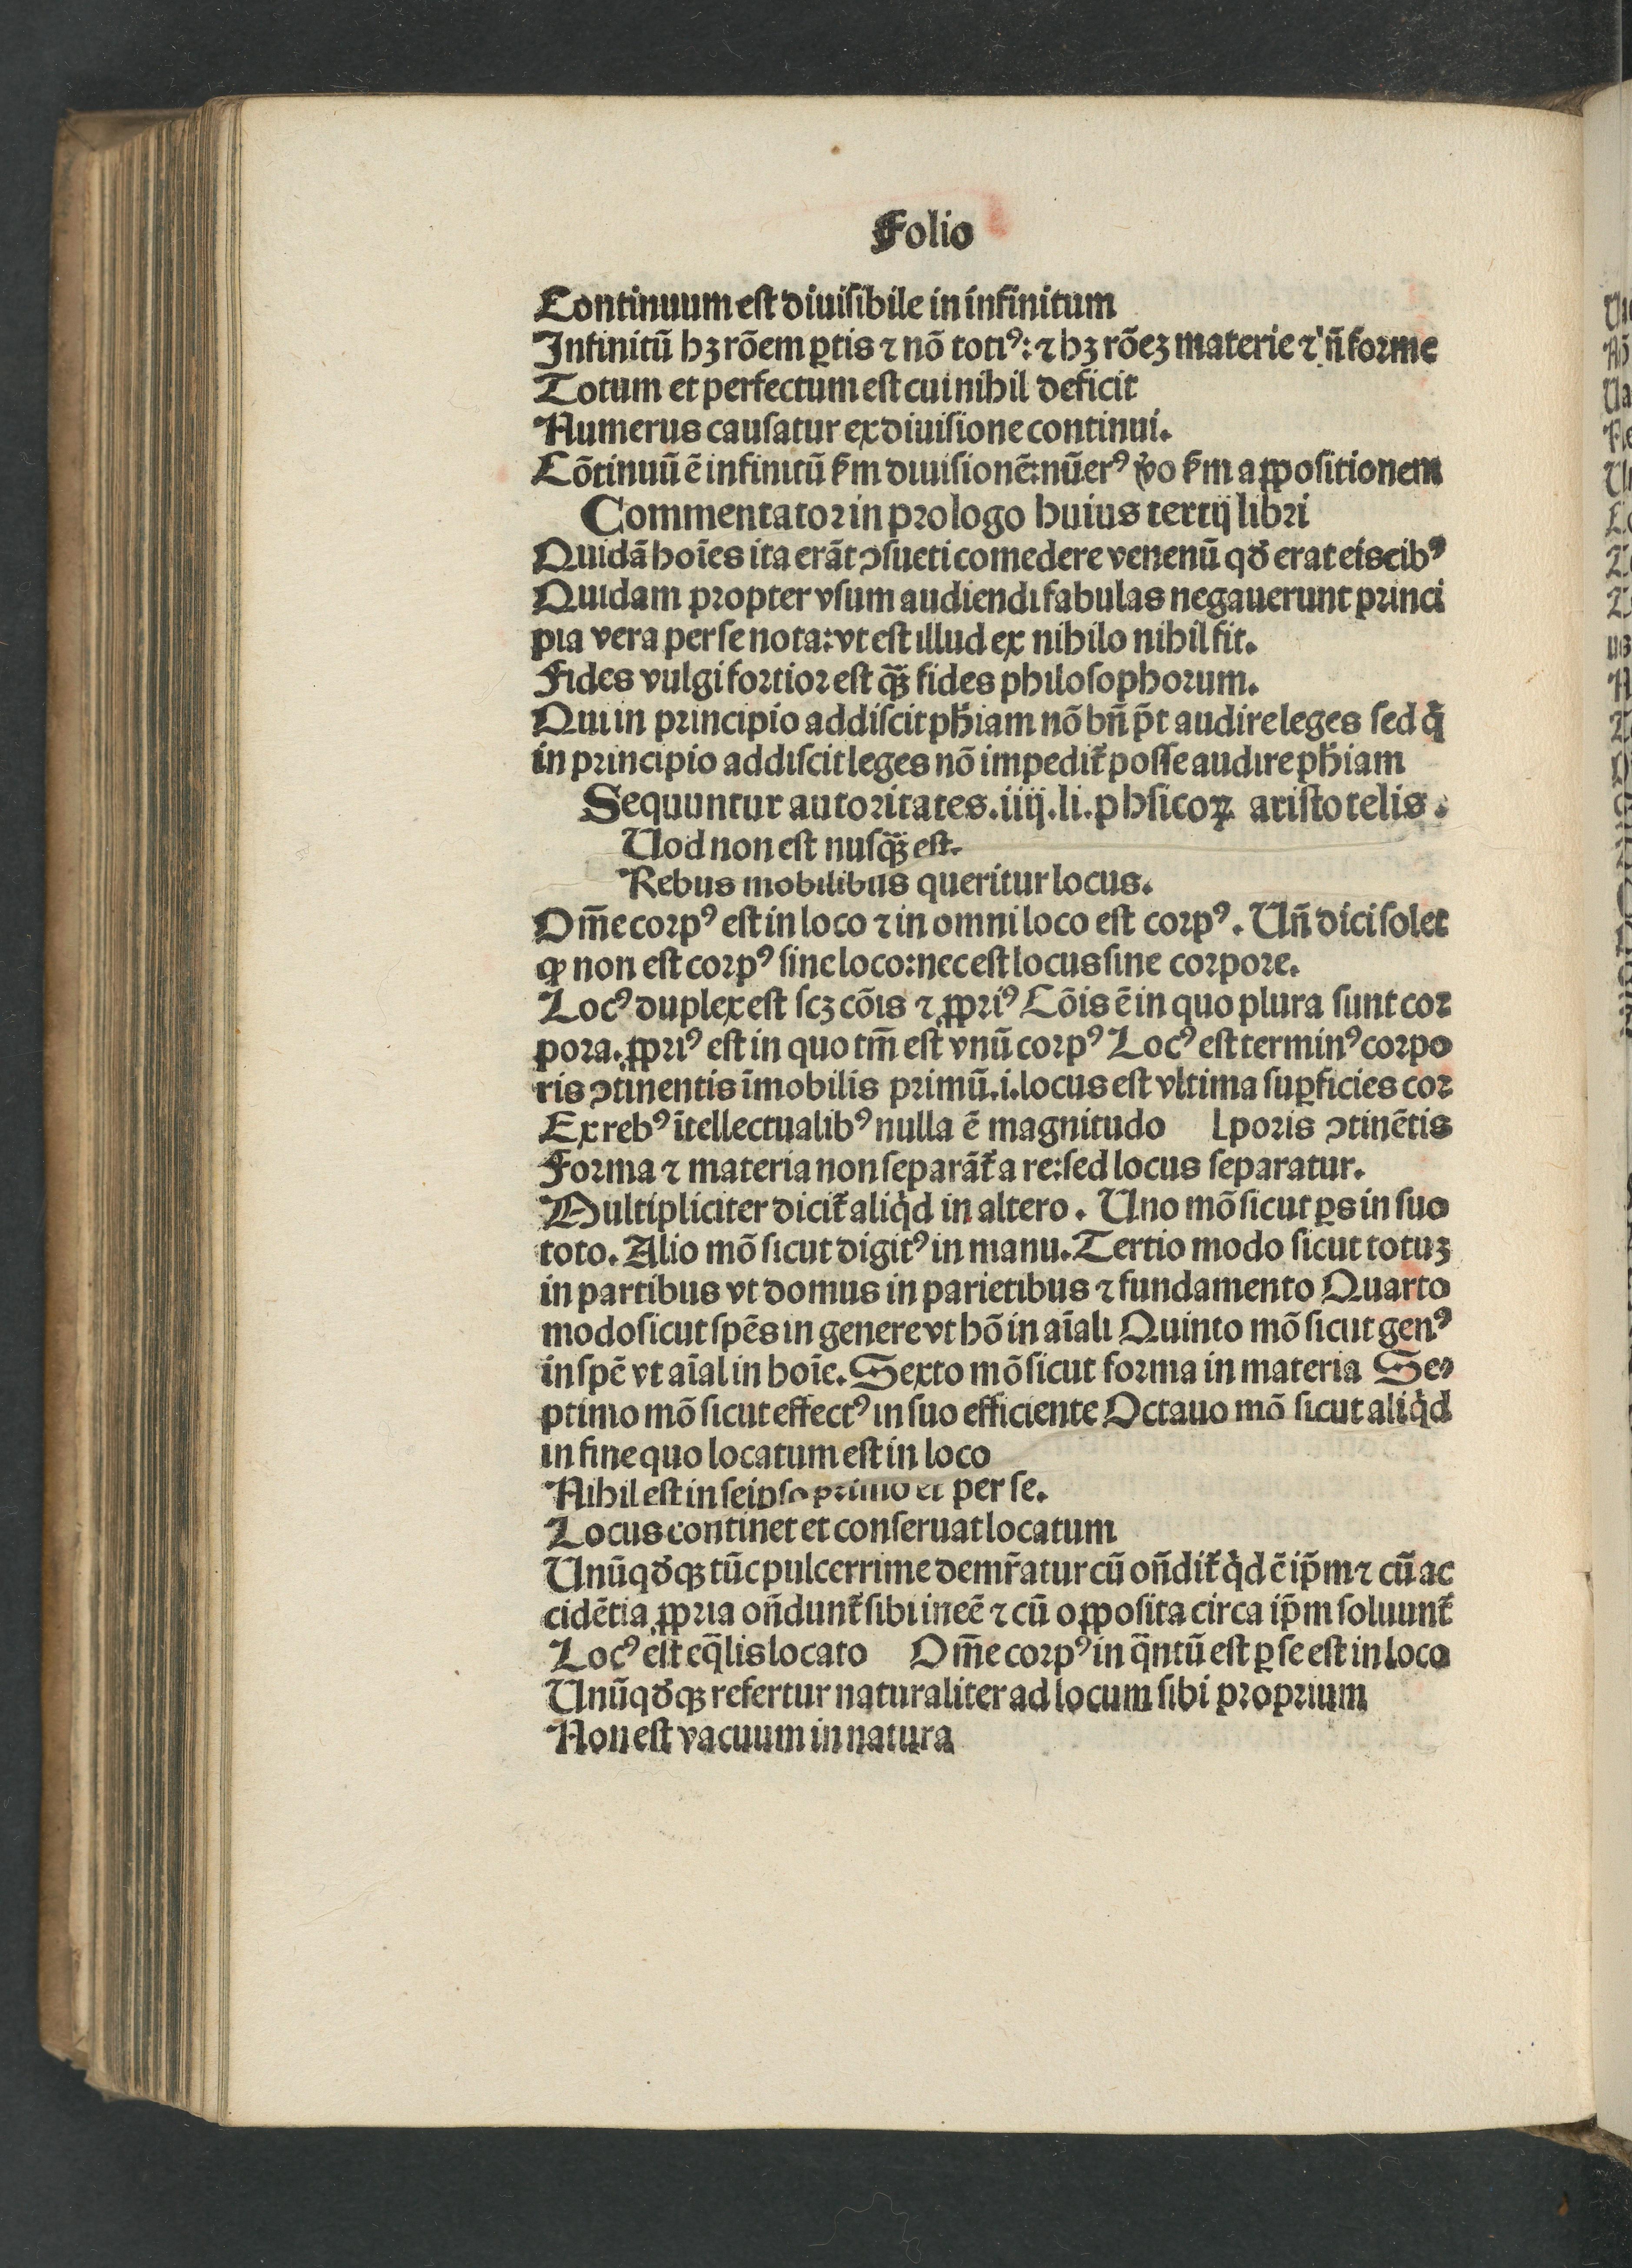 Folio
Continuum est diuisibile in infinitum
Infinitū hꝫ rōem ꝑtis ⁊ nō totiꝰ: ⁊ hꝫ rōeꝫ materie ⁊ n̄ forme
Totum et perfectum est cui nihil deficit
Numerus causatur ex diuisione continui.
Cōtinuū ē infinitū ẜm diuisionē: nūerꝰ v̓o ẜm appositionem
Commentator in prologo huius tertij libri
Quidā hoīes ita erāt ɔsueti comedere venenū qđ erat eis cibꝰ
Quidam propter vsum audiendi fabulas negauerunt princi
pia vera per se nota: vt est illud ex nihilo nihil fit.
Fides vulgi fortior est qȝ̄ fides philosophorum.
Qui in principio addiscit ph̄iam nō bn̄ p̄t audire leges sed q̇
in principio addiscit leges nō impedit᷑ posse audire ph̄iam
Sequuntur autoritates .iiij. li. phsicoꝝ aristotelis.
Uod non est nusqȝ̄ est.
Rebus mobilibus queritur locus.
Om̄e corpꝰ est in loco ⁊ in omni loco est corpꝰ. Un̄ dici solet
ꝙ non est corpꝰ sine loco: nec est locus sine corpore.
Locꝰ duplex est scꝫ cōis ⁊ ꝓpriꝰ Cōis ē in quo plura sunt cor
pora. ꝓpriꝰ est in quo tm̄ est vnū corpꝰ Locꝰ est terminꝰ corpo
ris ɔtinentis īmobilis primū. i. locus est vltima suꝑficies cor
Ex rebꝰ ītellectualibꝰ nulla ē magnitudo [poris ɔtinētis
Forma ⁊ materia non separāt᷑ a re: sed locus separatur.
Multipliciter dicit᷑ aliq̇d in altero. Uno mō sicut ꝑs in suo
toto. Alio mō sicut digitꝰ in manu. Tertio modo sicut totuꝫ
in partibus vt domus in parietibus ⁊ fundamento Quarto
modo sicut spēs in genere vt hō in aīali Quinto mō sicut genꝰ
in spē vt aīal in hoīe. Sexto mō sicut forma in materia Se⸗
ptimo mō sicut effectꝰ in suo efficiente Octauo mō sicut aliq̇d
in fine quo locatum est in loco
Nihil est in seipso primo et per se.
Locus continet et conseruat locatum
Unūqđqꝫ tūc pulcerrime demr̄atur cū on̄dit᷑ q̇d ē ip̄m ⁊ cū ac
cidētia ꝓpria on̄dunt᷑ sibi ineē ⁊ cū opposita circa ip̄m soluunt᷑
Locꝰ est eq̄lis locato Om̄e corpꝰ in q̄ntū est ꝑ se est in loco
Unūqđqꝫ refertur naturaliter ad locum sibi proprium
Non est vacuum in natura